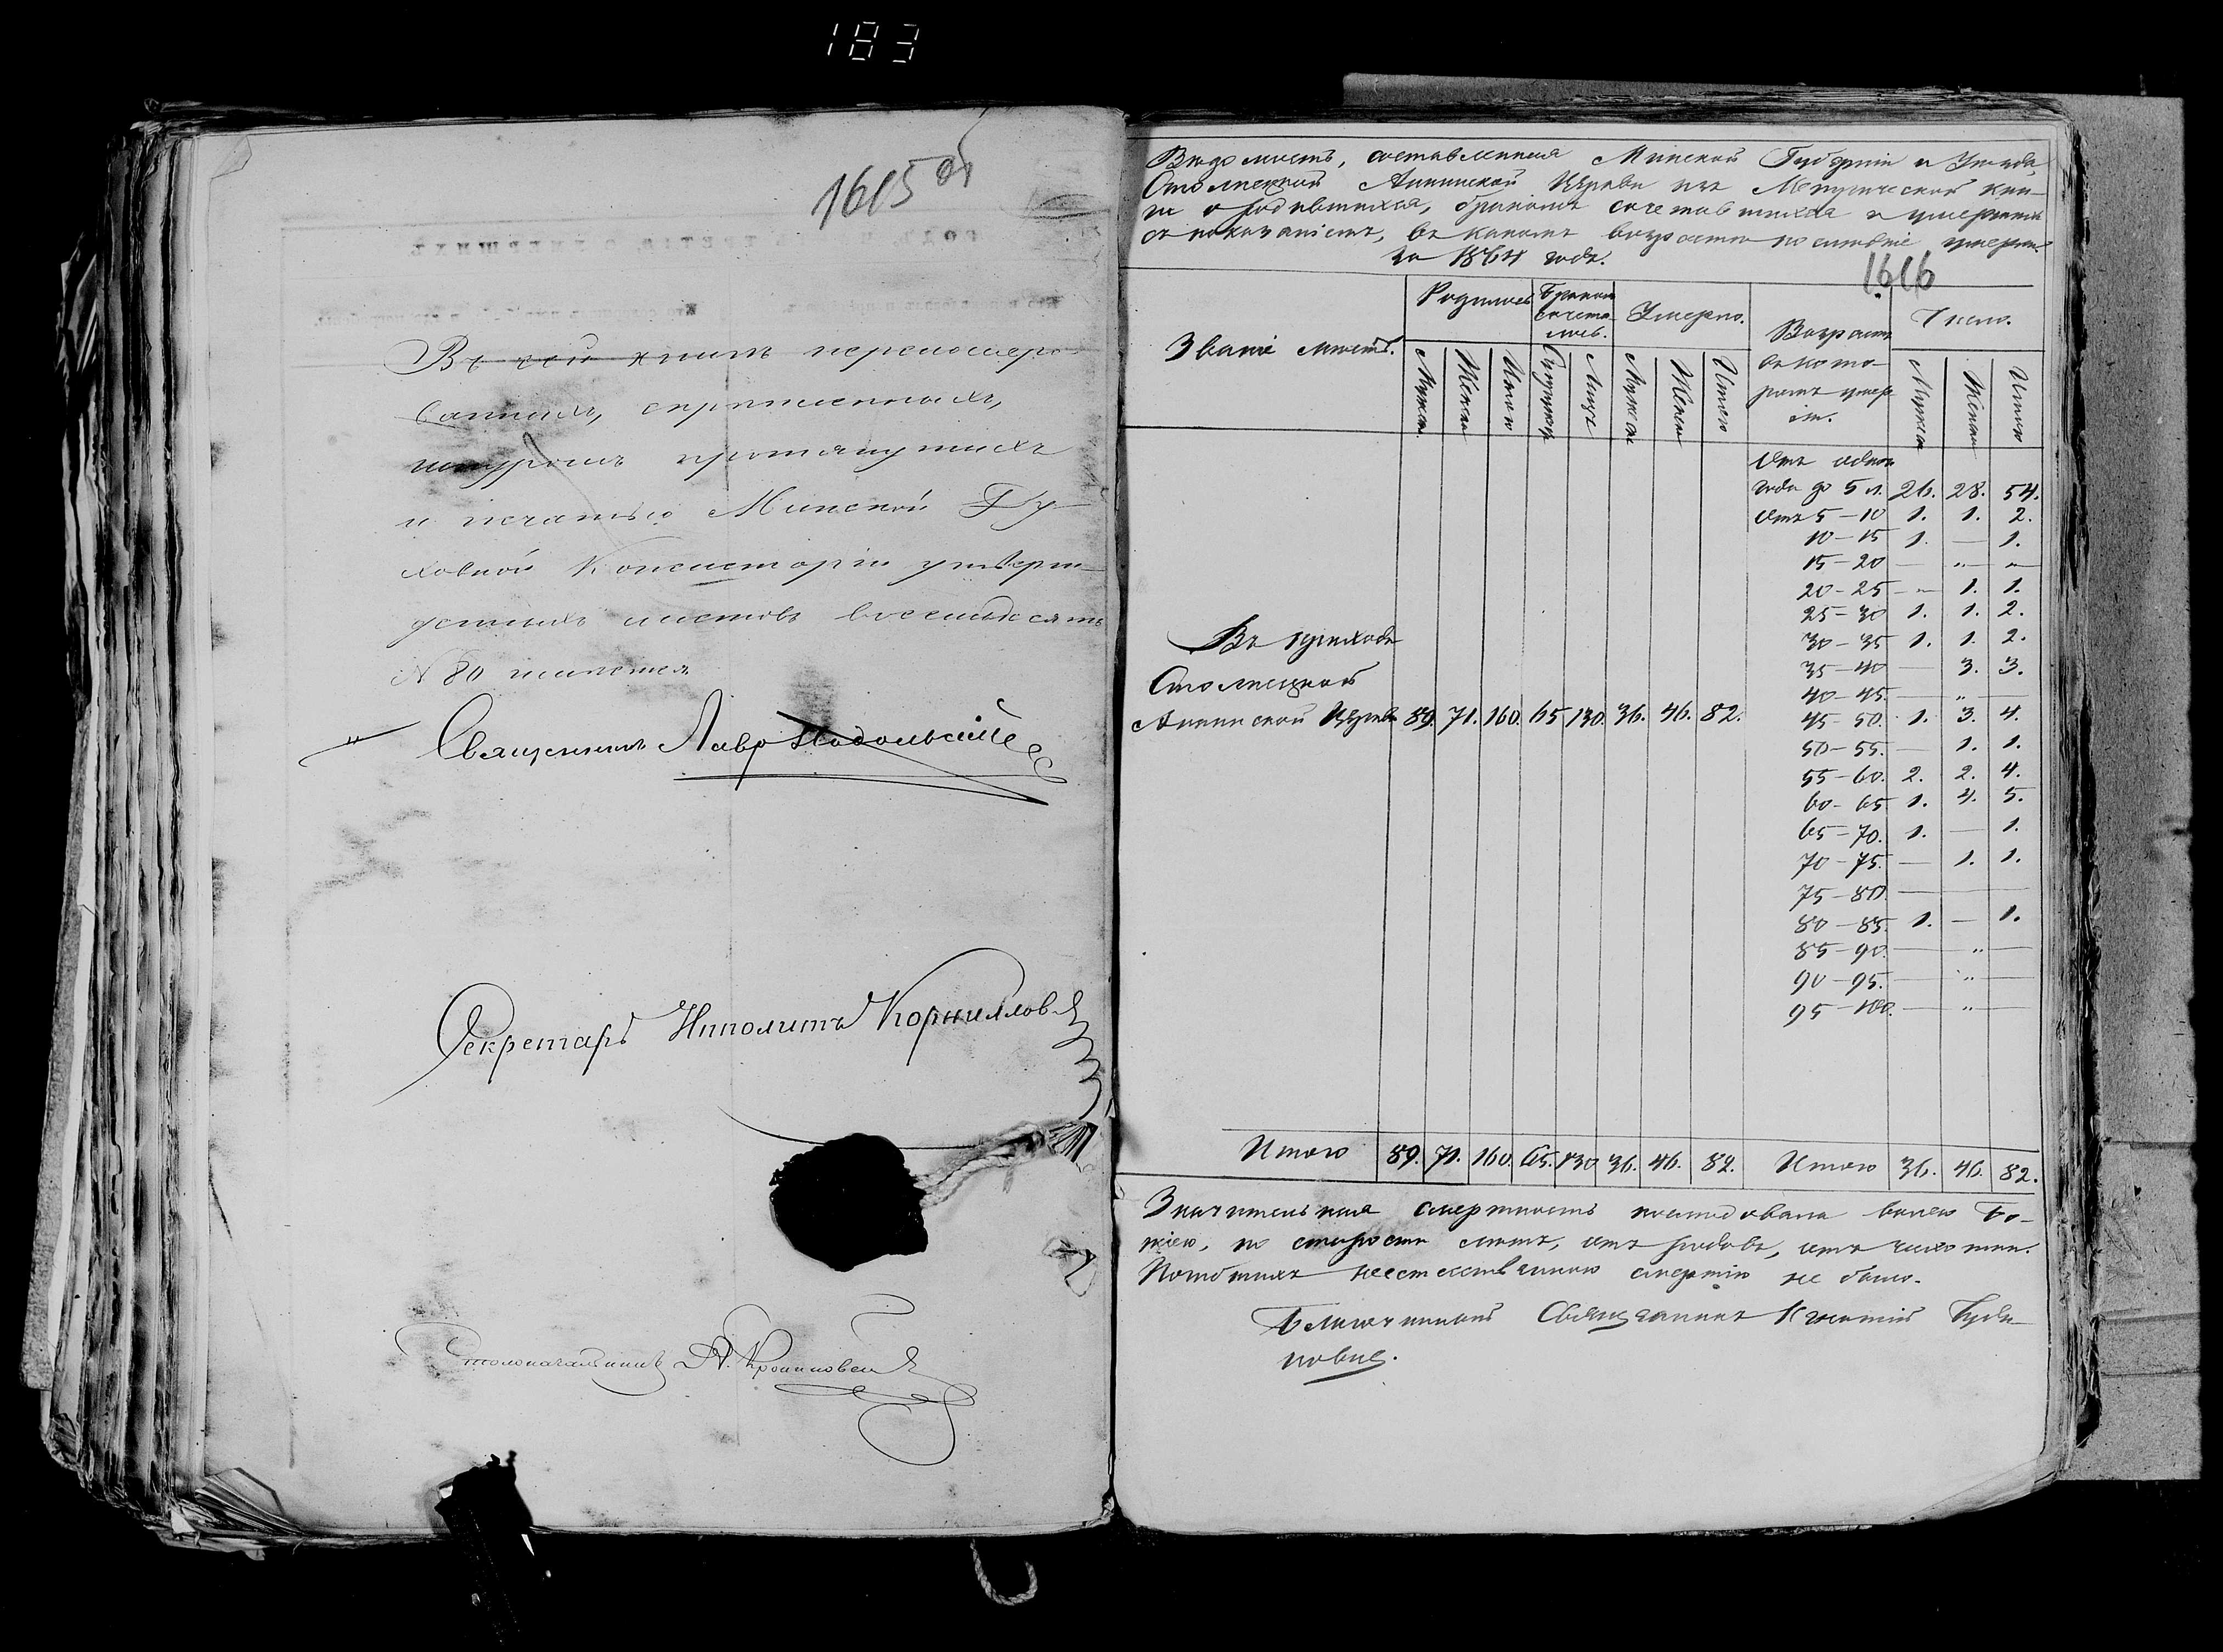 183
1615 об
Въ сей книгѣ перенумеро-
ванныхъ, скрѣпленныхъ,
шнуромъ протянутыхъ
и печатью Минской Ду-
ховной Консисторіи утверж-
денныхъ листовъ восемьдесятъ
№ 80 имѣется
Священникъ Лавр Подольскій
Секретарь Ипполитъ Корнилов
Столоначальникъ
Вѣдомость, составленная Минской Губерніи и Уѣзда,
Столпецкой Аннинской Церкви изъ Метрической кни-
ги о родившихся, бракомъ сочетавшихся и умершихъ
съ показаніемъ, въ какомъ возрастѣ послѣдніе умерли.
за 1864 годъ.
1616
Званіе мѣстъ.
Родилось
Бракомъ
сочета-
лись.
Умерло.
Возрастъ
въ кото-
ромъ умер-
ли.
Число.
Мужеск
Женск
Итого
Супруж
Лицъ
Мужеск
Женск
Итого
Мужеск
Женск
Итого
Отъ одного
года до 5 л. 26. 28. 54.
Отъ 5-10 1. 1. 2.
10-15 1. — 1.
15-20 — „ —
20-25 — 1. 1.
25-30 1. 1. 2.
30-35 1. 1. 2.
35-40 — 3. 3.
40-45. — „ —
45-50. 1. 3. 4.
50-55. — 1. 1.
55-60. 2. 2. 4.
60-65 1. 4. 5.
65-70. 1. — 1.
70-75. — 1. 1.
75-80. — — —
80-85. 1. — 1.
85-90. — „ —
90-95. — „ —
95-100. — „ —
Въ приходѣ
Столпецкой
Аннинской Церкви 89. 71. 160. 65 130. 36. 46. 82.
Итого 89. 71. 160. 65. 130 36. 46. 82. Итого 36. 46. 82.
Значительная смертность послѣдовала волею Бо-
жіею, по старости лѣтъ, отъ родовъ, отъ чахотки.
Погибшихъ неестественною смертію не было.
Благочинный Священникъ